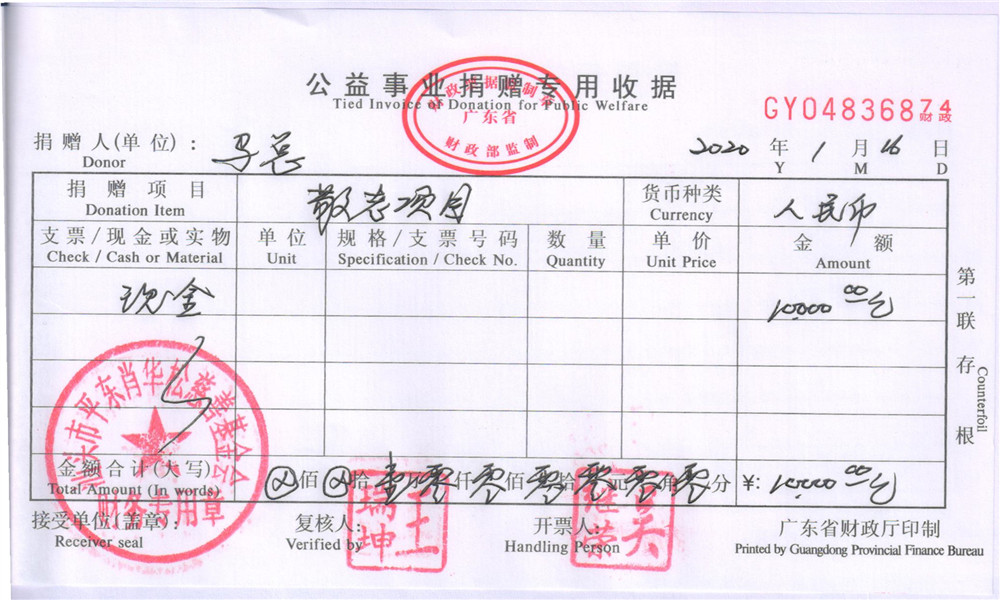 公益事业捐赠专用收据
Tied Invoice of Donation for Public Welfare
财政部监制
广东省
GY04836874
财政
捐赠人(单位):
Donor
2020 年 1 月 16 日
Y M D
捐赠项目 敬老项目 货币种类 人民币
Donation Item Currency
支票/现金或实物 单位 规格/支票号码 数量 单价 金额
Check / Cash or Material Unit Specification / Check No. Quantity Unit Price Amount
现金 10000.00元
第一联 存根
Counterfoil
汕头市平东肖华松慈善基金会
财务专用章
金额合计(大写) 佰 拾 壹 零 仟 零 佰 零 拾 零 元 零 角 零 分 ¥: 10000.00元
Total Amount (In words)
接受单位(盖章): 复核人: 开票人: 广东省财政厅印制
Receiver seal Verified by Handling Person Printed by Guangdong Provincial Finance Bureau
王瑞坤
吴继荣